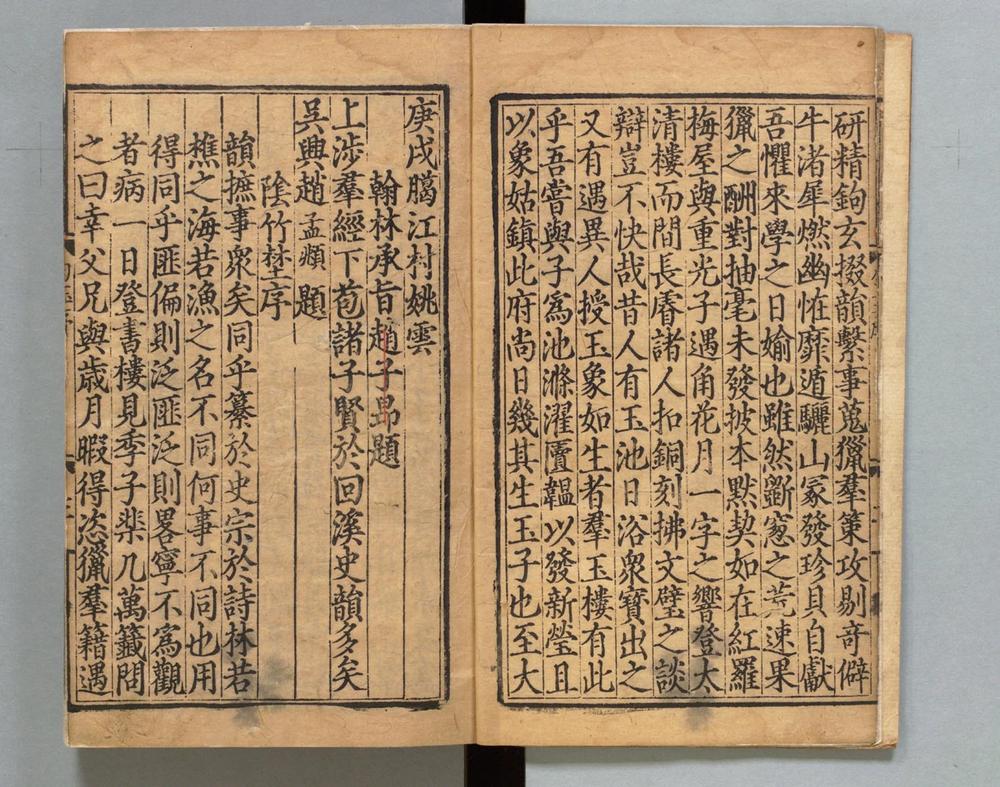 研精鉤玄掇韻繫事蒐獵羣策攻剔竒僻
牛渚犀燃幽恠靡遁驪山冢發珍貝自獻
吾懼來學之日媮也雖然斵窓之荒速果
獵之酬對抽毫未發披本默契如在紅羅
梅屋與重光子遇角花月一字之響登太
清樓而間長睿諸人扣銅刻拂文璧之談
辯豈不快哉昔人有玉池日浴衆寳出之
又有遇異人授玉象如生者羣玉樓有此
乎吾嘗與子爲池滌濯匵韞以發新瑩且
以象姑鎮此府尚日幾其生玉子也至大
庚戌臈江村姚雲
翰林承旨趙子昻題
上涉羣經下苞諸子賢於回溪史韻多矣
吳興趙孟頫題
陰竹埜序
韻摭事衆矣同乎纂於史宗於詩林若
樵之海若漁之名不同何事不同也用
得同乎匪偏則泛匪泛則畧寧不爲觀
者病一日登書樓見季子棐几萬籖問
之曰幸父兄與歳月暇得恣獵羣籍遇